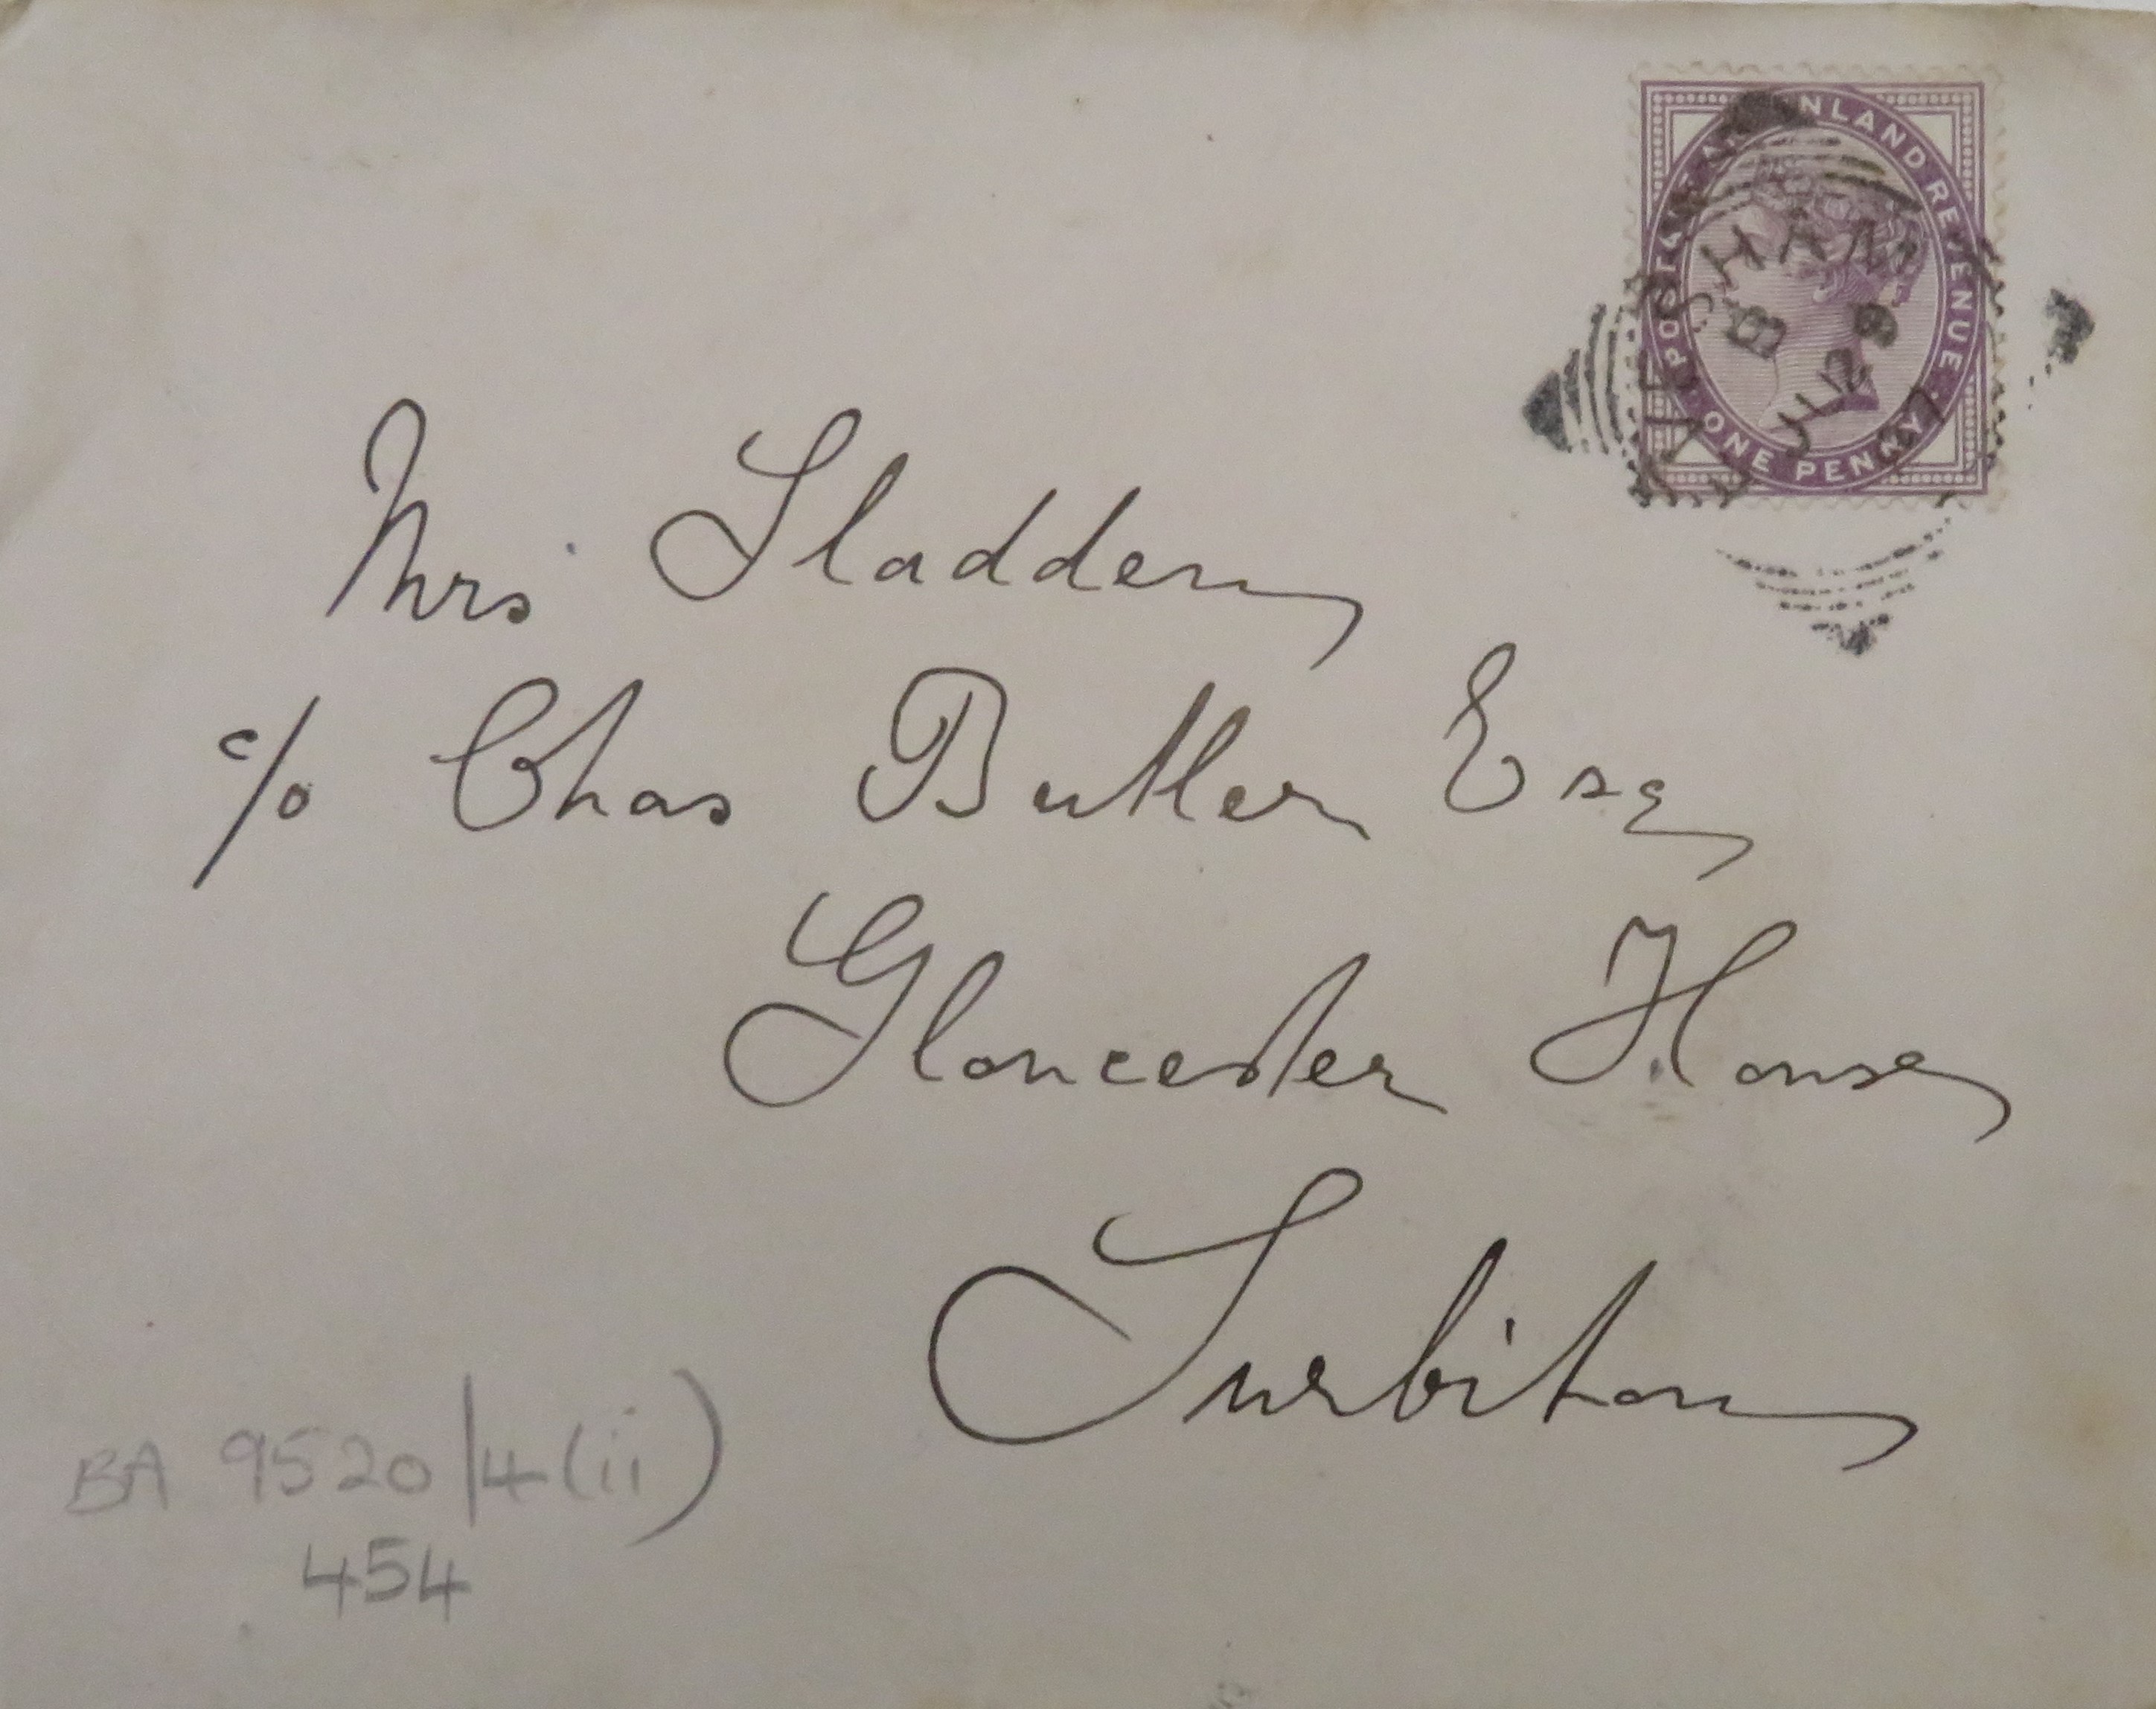 POSTAGE AND INLAND REVENUE
ONE PENNY
EVESHAM
B
JY 29
97
Mrs Sladden
c/o Chas Butler Esq
Gloucester House
Surbiton
BA 9520/4(ii)
454